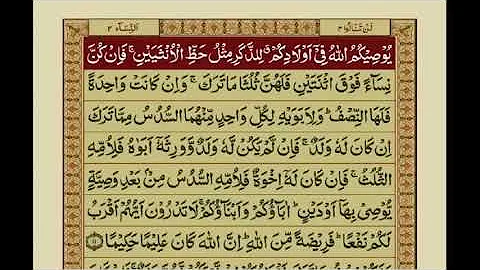 لن تنالوا ۴
النسآء ۴
یُوْصِیْكُمُ اللّٰهُ فِیْۤ اَوْلَادِكُمْ ۗ لِلذَّكَرِ مِثْلُ حَظِّ الْاُنْثَیَیْنِ ۚ فَاِنْ كُنَّ
نِسَآءً فَوْقَ اثْنَتَیْنِ فَلَهُنَّ ثُلُثَا مَا تَرَكَ ۚ وَاِنْ كَانَتْ وَاحِدَةً
فَلَهَا النِّصْفُ ؕ وَلِاَبَوَیْهِ لِكُلِّ وَاحِدٍ مِّنْهُمَا السُّدُسُ مِمَّا تَرَكَ
اِنْ كَانَ لَهٗ وَلَدٌ ۚ فَاِنْ لَّمْ یَكُنْ لَّهٗ وَلَدٌ وَّوَرِثَهٗۤ اَبَوٰهُ فَلِاُمِّهِ
الثُّلُثُ ۚ فَاِنْ كَانَ لَهٗۤ اِخْوَةٌ فَلِاُمِّهِ السُّدُسُ مِنْۢ بَعْدِ وَصِیَّةٍ
یُّوْصِیْ بِهَاۤ اَوْ دَیْنٍ ؕ اٰبَآؤُكُمْ وَاَبْنَآؤُكُمْ لَا تَدْرُوْنَ اَیُّهُمْ اَقْرَبُ
لَكُمْ نَفْعًا ؕ فَرِیْضَةً مِّنَ اللّٰهِ ؕ اِنَّ اللّٰهَ كَانَ عَلِیْمًا حَكِیْمًا ۱۱